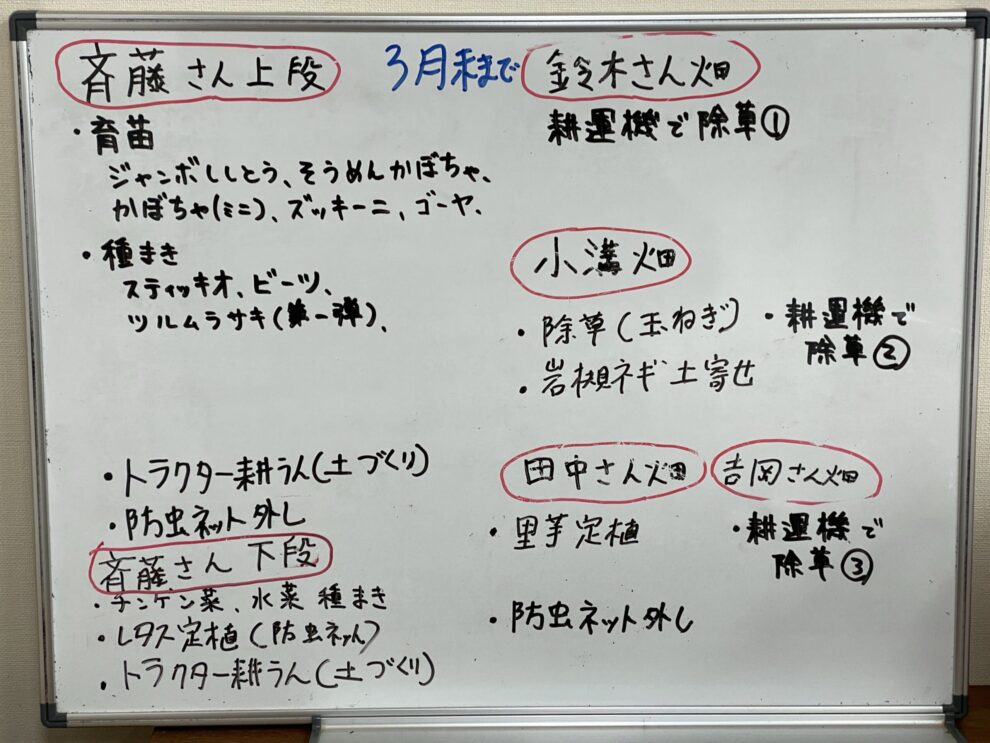 斉藤さん上段
・育苗
ジャンボししとう、そうめんかぼちゃ、
かぼちゃ(ミニ)、ズッキーニ、ゴーヤ、
・種まき
スティッキオ、ビーツ、
ツルムラサキ(第一弾)、
・トラクター耕うん(土づくり)
・防虫ネット外し
斉藤さん 下段
・チンゲン菜、水菜 種まき
・レタス定植(防虫ネット)
・トラクター耕うん(土づくり)
3月末まで
鈴木さん畑
耕運機で除草①
小溝畑
・除草(玉ねぎ)
・岩槻ネギ土寄せ
・耕運機で
除草②
田中さん畑
・里芋定植
・防虫ネット外し
吉岡さん畑
・耕運機で
除草③